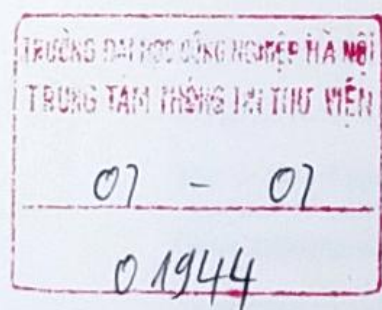 TRƯỜNG ĐẠI HỌC CÔNG NGHIỆP HÀ NỘI
TRUNG TÂM THÔNG TIN THƯ VIỆN
07 - 07
01944